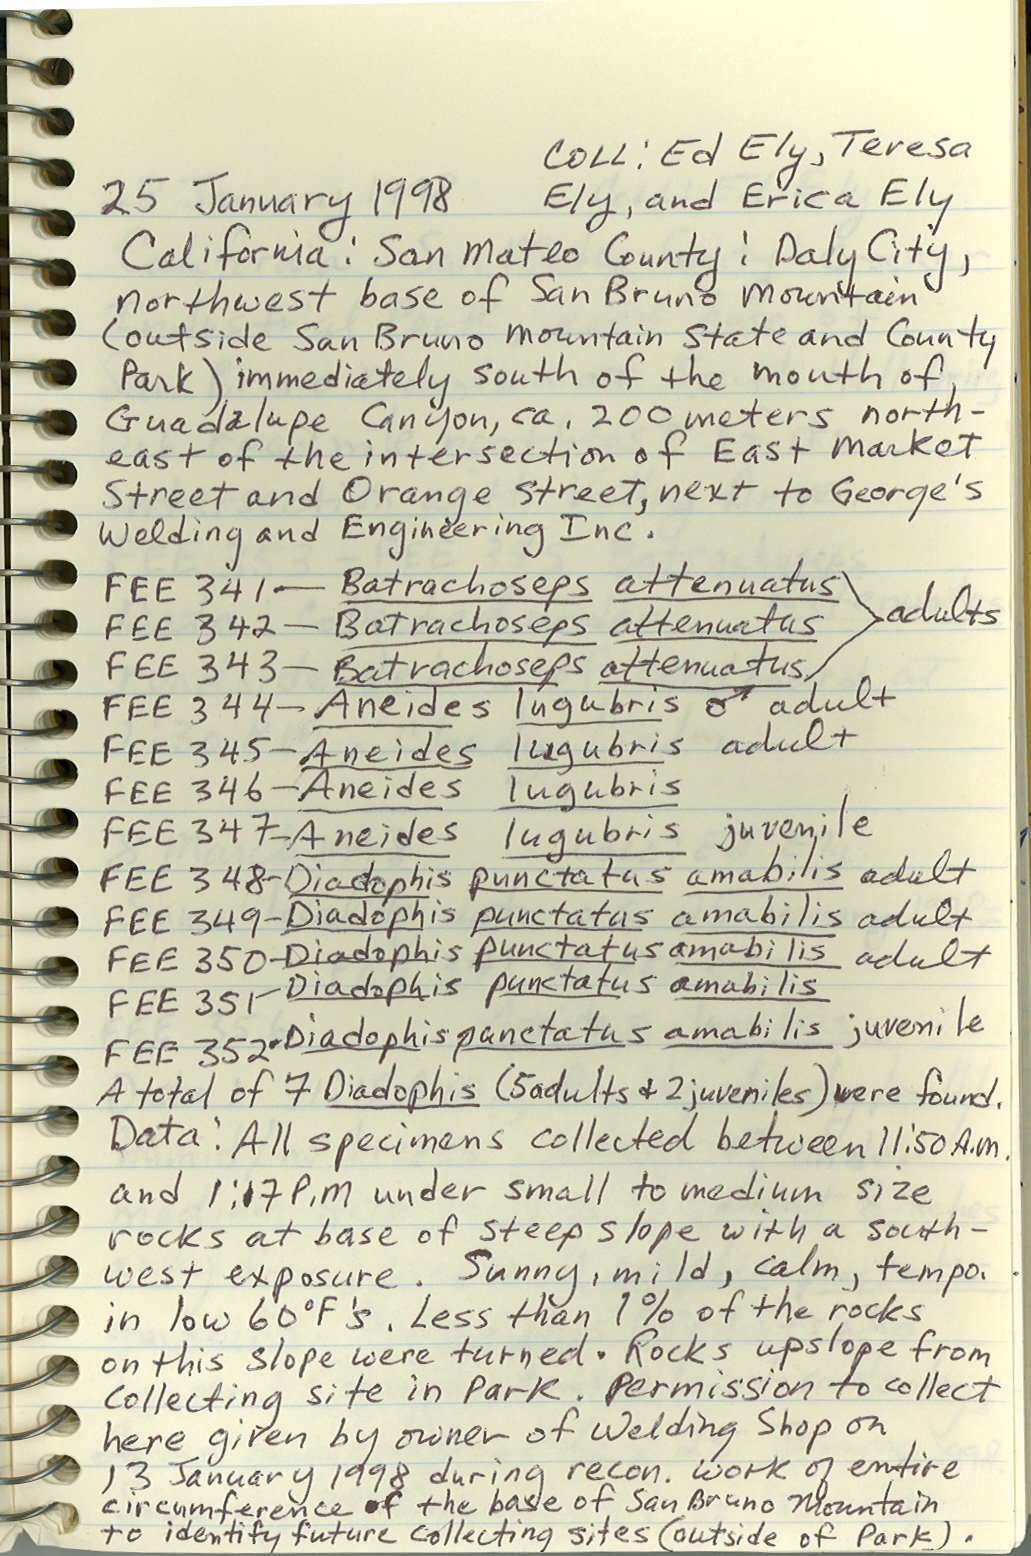 COLL: Ed Ely, Teresa
25 January 1998 Ely, and Erica Ely
California: San Mateo County: Daly City,
northwest base of San Bruno Mountain
(outside San Bruno Mountain State and County
Park) immediately south of the mouth of
Guadalupe Canyon, ca. 200 meters north-
east of the intersection of East Market
Street and Orange Street, next to George's
Welding and Engineering Inc.
FEE 341 — Batrachoseps attenuatus
FEE 342 — Batrachoseps attenuatus adults
FEE 343 — Batrachoseps attenuatus
FEE 344 — Aneides lugubris ♂ adult
FEE 345 — Aneides lugubris adult
FEE 346 — Aneides lugubris
FEE 347 — Aneides lugubris juvenile
FEE 348 - Diadophis punctatus amabilis adult
FEE 349 - Diadophis punctatus amabilis adult
FEE 350 - Diadophis punctatus amabilis adult
FEE 351 - Diadophis punctatus amabilis
FEE 352 - Diadophis punctatus amabilis juvenile
A total of 7 Diadophis (5 adults & 2 juveniles) were found.
Data: All specimens collected between 11:50 A.M.
and 1:17 P.M under small to medium size
rocks at base of steep slope with a south-
west exposure. Sunny, mild, calm, temp.
in low 60°F's. Less than 1% of the rocks
on this slope were turned. Rocks upslope from
collecting site in Park. Permission to collect
here given by owner of Welding Shop on
13 January 1998 during recon. work of entire
circumference of the base of San Bruno Mountain
to identify future collecting sites (outside of Park).